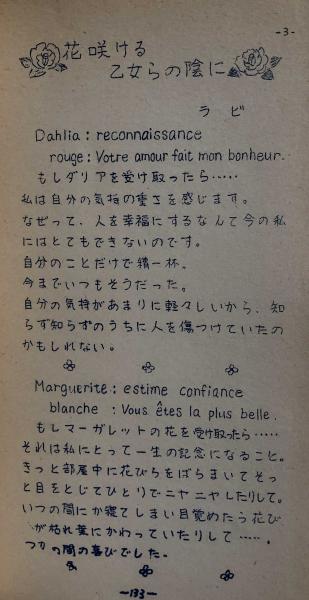 -3-
花咲ける
乙女らの陰に
ラビ
Dahlia: reconnaissance
rouge: Votre amour fait mon bonheur.
もしダリアを受け取ったら……
私は自分の気持の重さを感じます。
なぜって、人を幸福にするなんて今の私
にはとてもできないのです。
自分のことだけで精一杯。
今までいつもそうだった。
自分の気持があまりに軽々しいから、知
らず知らずのうちに人を傷つけていたの
かもしれない。
Marguerite: estime confiance
blanche: Vous êtes la plus belle.
もしマーガレットの花を受け取ったら……
それは私にとって一生の記念になること。
きっと部屋中に花びらをばらまいてそっ
と目をとじてひとりでニヤニヤしたりして。
いつの間にか寝てしまい目覚めたら花び
が枯れ葉にかわっていたりして……。
つかの間の喜びでした。
-133-